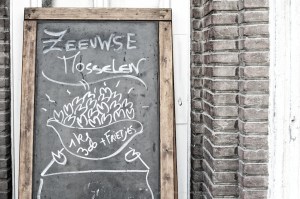 ZEEUWSE
MOSSELEN
1kg
+ FRIETJES